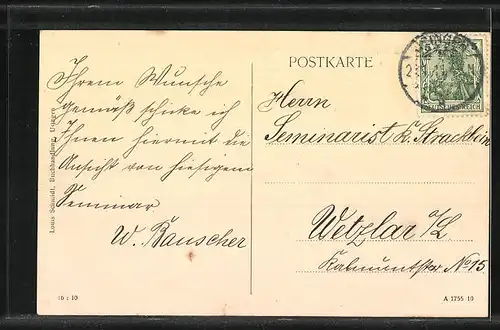 POSTKARTE
Ihrem Wunsche
gemäß schicke ich
Ihnen hiermit die
Ansicht von hiesigem
Seminar
W. Bauscher
Herrn
Seminarist K.
Wetzlar a/L
Kalsmuntstr No 15
DEUTSCHES REICH
Louis Schmidt, Buchhandlung, Usingen
16 : 10
A 1755 10